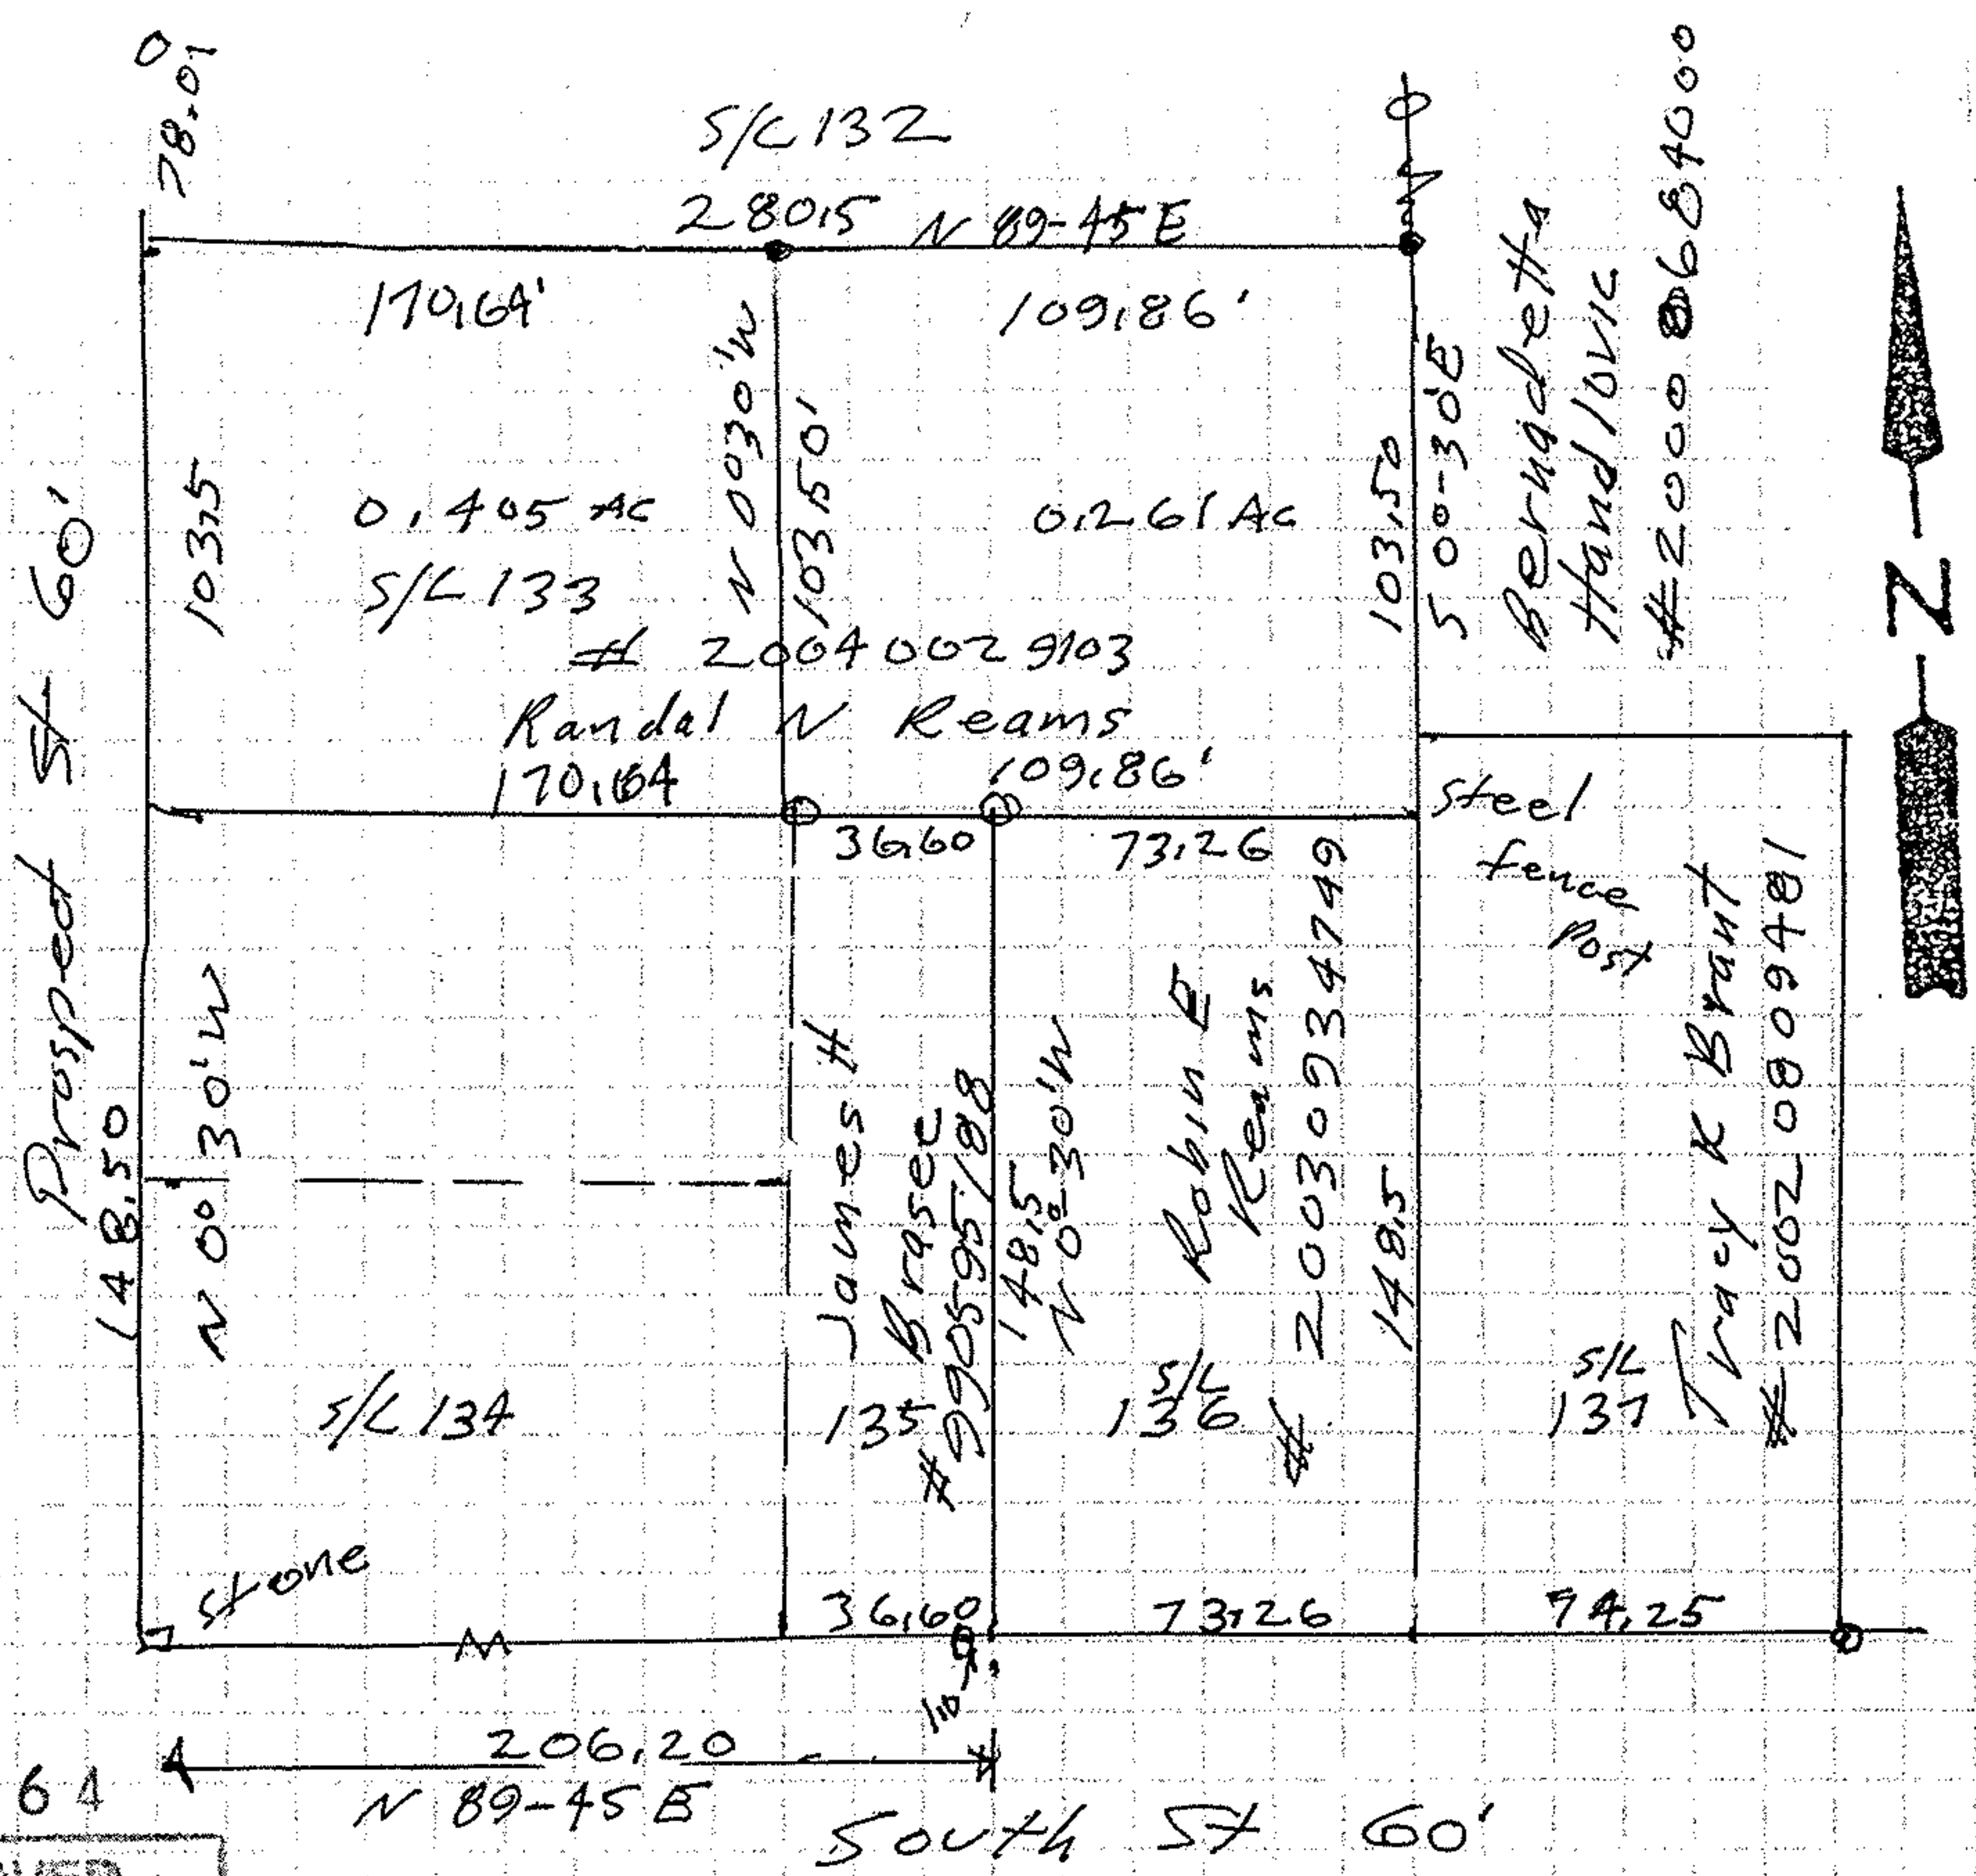 0
78.01
S/L 132
280.5 N 89-45 E
170.64'
109.86'
N 0°30'W
103.50'
103.5
0.405 Ac
S/L 133
0.261 Ac
103.50
S 00-30'E
Bernadetta
Handlovic
#200006840000
# 200400029103
Randal N Reams
170.64
109.86'
Prosped St 60'
N
36.60
73.26
steel
fence
Post
148.50
N 0° 30' W
James H
Brasee
#990595188
148.5
N 0°-30'W
Robin E
Reams
# 20030934749
148.5
Tracy K Brant
#20020809481
S/L 134
135
S/L
136
S/L
137
stone
36.60
73.26
74.25
10
206.20
N 89-45 E
South St 60'
64